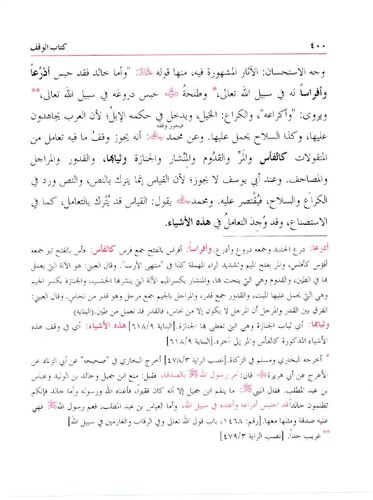 ٤٠٠ كتاب الوقف
وجه الاستحسان: الآثار المشهورة فيه، منها قوله ﷺ: "وأما خالد فقد حبس أدْرُعاً
وأفراساً له في سبيل الله تعالى،* وطلحةُ حبس دروعه في سبيل الله تعالى،**
ويروى: "وأكراعه"، والكراع: الخيل، ويدخل في حكمه الإبل؛ لأن العرب يجاهدون
عليها، وكذا السلاح يحمل عليها. وعن محمد: أنه يجوز وقفُ ما فيه تعامل من
فيجوز وقفه
المنقولات كالفأس والمَرِّ والقَدُوم والمِنْشار والجنازة وثيابها، والقدور والمراجل
والمصاحف. وعند أبي يوسف لا يجوز؛ لأن القياس إنما يترك بالنص، والنص ورد في
الكراع والسلاح، فيُقتصر عليه. ومحمد يقول: القياس قد يُتْرك بالتعامل، كما في
الاستصناع، وقد وُجِدَ التعاملُ في هذه الأشياء.
أدرعا: درع الحديد وجمعه دروع وأدرع. وأفراسا: أفراس بالفتح جمع فرس. كالفأس: فأس بالفتح تبر جمعه
أفؤس كأفلس، والمر بفتح الميم وتشديد الراء المهملة كذا في "منتهى الأرب". وقال العيني: هو الآلة التي يعمل
بها في الطين، والقدوم وهي التي ينحت بها، والمنشار بكسر الميم الآلة التي ينشر بها الخشب، والجنازة بكسر الجيم
وهي التي يحمل عليها الميت، والقدور جمع قدر، والمراجل بالجيم جمع مرجل وهو قدر من نحاس. وقال العيني:
الفرق بين القدور والمرجل أن المرجل لا يكون إلا من نحاس، فالقدور قد تعمل من طين. (البناية)
وثيابها: أي ثياب الجنازة وهي التي تغطى بها الجنازة.[البناية ٦١٨/٩] هذه الأشياء: أي في وقف هذه
الأشياء المذكورة كالفأس والمر إلى آخره.[البناية ٦١٨/٩]
* أخرجه البخاري ومسلم في الزكاة.[نصب الراية ٤٧٨/٣] أخرج البخاري في "صحيحه" عن أبي الزناد عن
الأعرج عن أبي هريرة قال: أمر رسول الله ﷺ بالصدقة، فقيل: منع ابن جميل وخالد بن الوليد وعباس بن
عبد المطلب. فقال النبي ﷺ: ما ينقم ابن جميل إلا أنه كان فقيراً، فأغناه الله ورسوله وأما خالد فإنكم
تظلمون خالداً قد احتبس أدراعه وأعتده في سبيل الله، وأما العباس بن عبد المطلب، فعم رسول الله ﷺ فهي
عليه صدقة ومثلها معها.[رقم: ١٤٦٨، باب قول الله تعالى وفي الرقاب والغارمين في سبيل الله]
** غريب جداً. [نصب الراية ٤٧٩/٣]